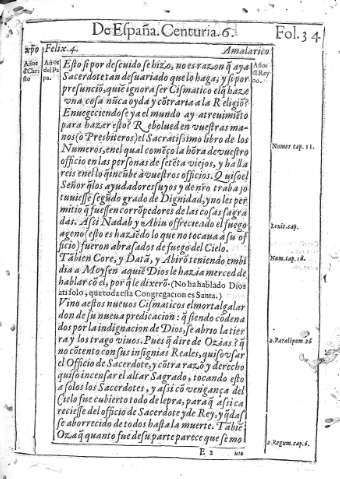 De España. Centuria. 6.
Fol. 34
xp̃o Felix. 4. Amalarico
Años d Christo
Años del Papa.
Años del Reyno.
Esto si por descuido se hizo, no es razon q̃ aya
Sacerdote tan desuariado que lo haga; y si por
presunciõ, quiẽ ignora ser Cismatico el q̃ haze
vna cosa nũca oyda y cõtraria a la Religiõ?
Enuegeciendose ya el mundo ay atreuimiẽto
para hazer esto? Rebolued en vuestras manos
(o Presbiteros) el Sacratissimo libro de los
Numeros, en el qual comẽço la hõra de vuestro
officio en las personas de setẽta viejos, y hallareis
en el lo q̃ incũbe a vuestros officios. Quiso el
Señor q̃ los ayudadores suyos y de nr̃o trabajo
tuuiesse segũdo grado de Dignidad, y no les permitio
q̃ fuessen corrõpedores de las cosas sagradas.
Assi Nadab y Abiu offreciendo el fuego
ageno (esto es haziẽdo lo que no tocaua a su officio)
fueron abrasados de fuego del Cielo.
Tãbien Core, y Datã, y Abirõ teniendo embidia
a Moysen aquiẽ Dios le hazia merced de
hablar cõ el, por q̃ le dixerõ (No ha hablado Dios
a ti solo, que toda esta Congregacion es Santa.)
Vino a estos nueuos Cismaticos el mortal galardon
de su nueua predicacion: q̃ siendo cõdenados
por la indignacion de Dios, se abrio la tierra
y los trago viuos. Pues q̃ dire de Ozias? q̃
no cõtento con sus insignias Reales, quiso vsar
el Officio de Sacerdote, y cõtra razõ y derecho
quiso incensar el altar Sagrado, tocando esto
a solos los Sacerdotes, y assi cõ vengança del
Cielo fue cubierto todo de lepra, para q̃ assi careciesse
del officio de Sacerdote y de Rey, y q̃dasse
aborrecido de todos hasta la muerte. Tãbiẽ
Oza q̃ quanto fue de su parte parece que se mo
E 2
Numer. cap. 11.
Leuit. cap.
Num. cap. 18.
2. Paralipom 26
2. Regum. cap. 6.